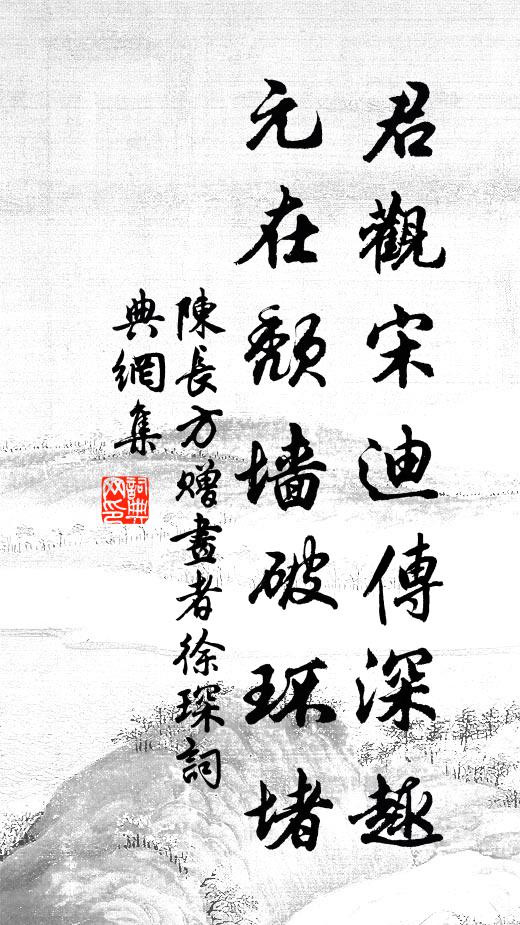 君觀宋迪傳深趣
元在頹墻破环堵
陳長方贈畫者徐琛詞
典網集
詞典
网印